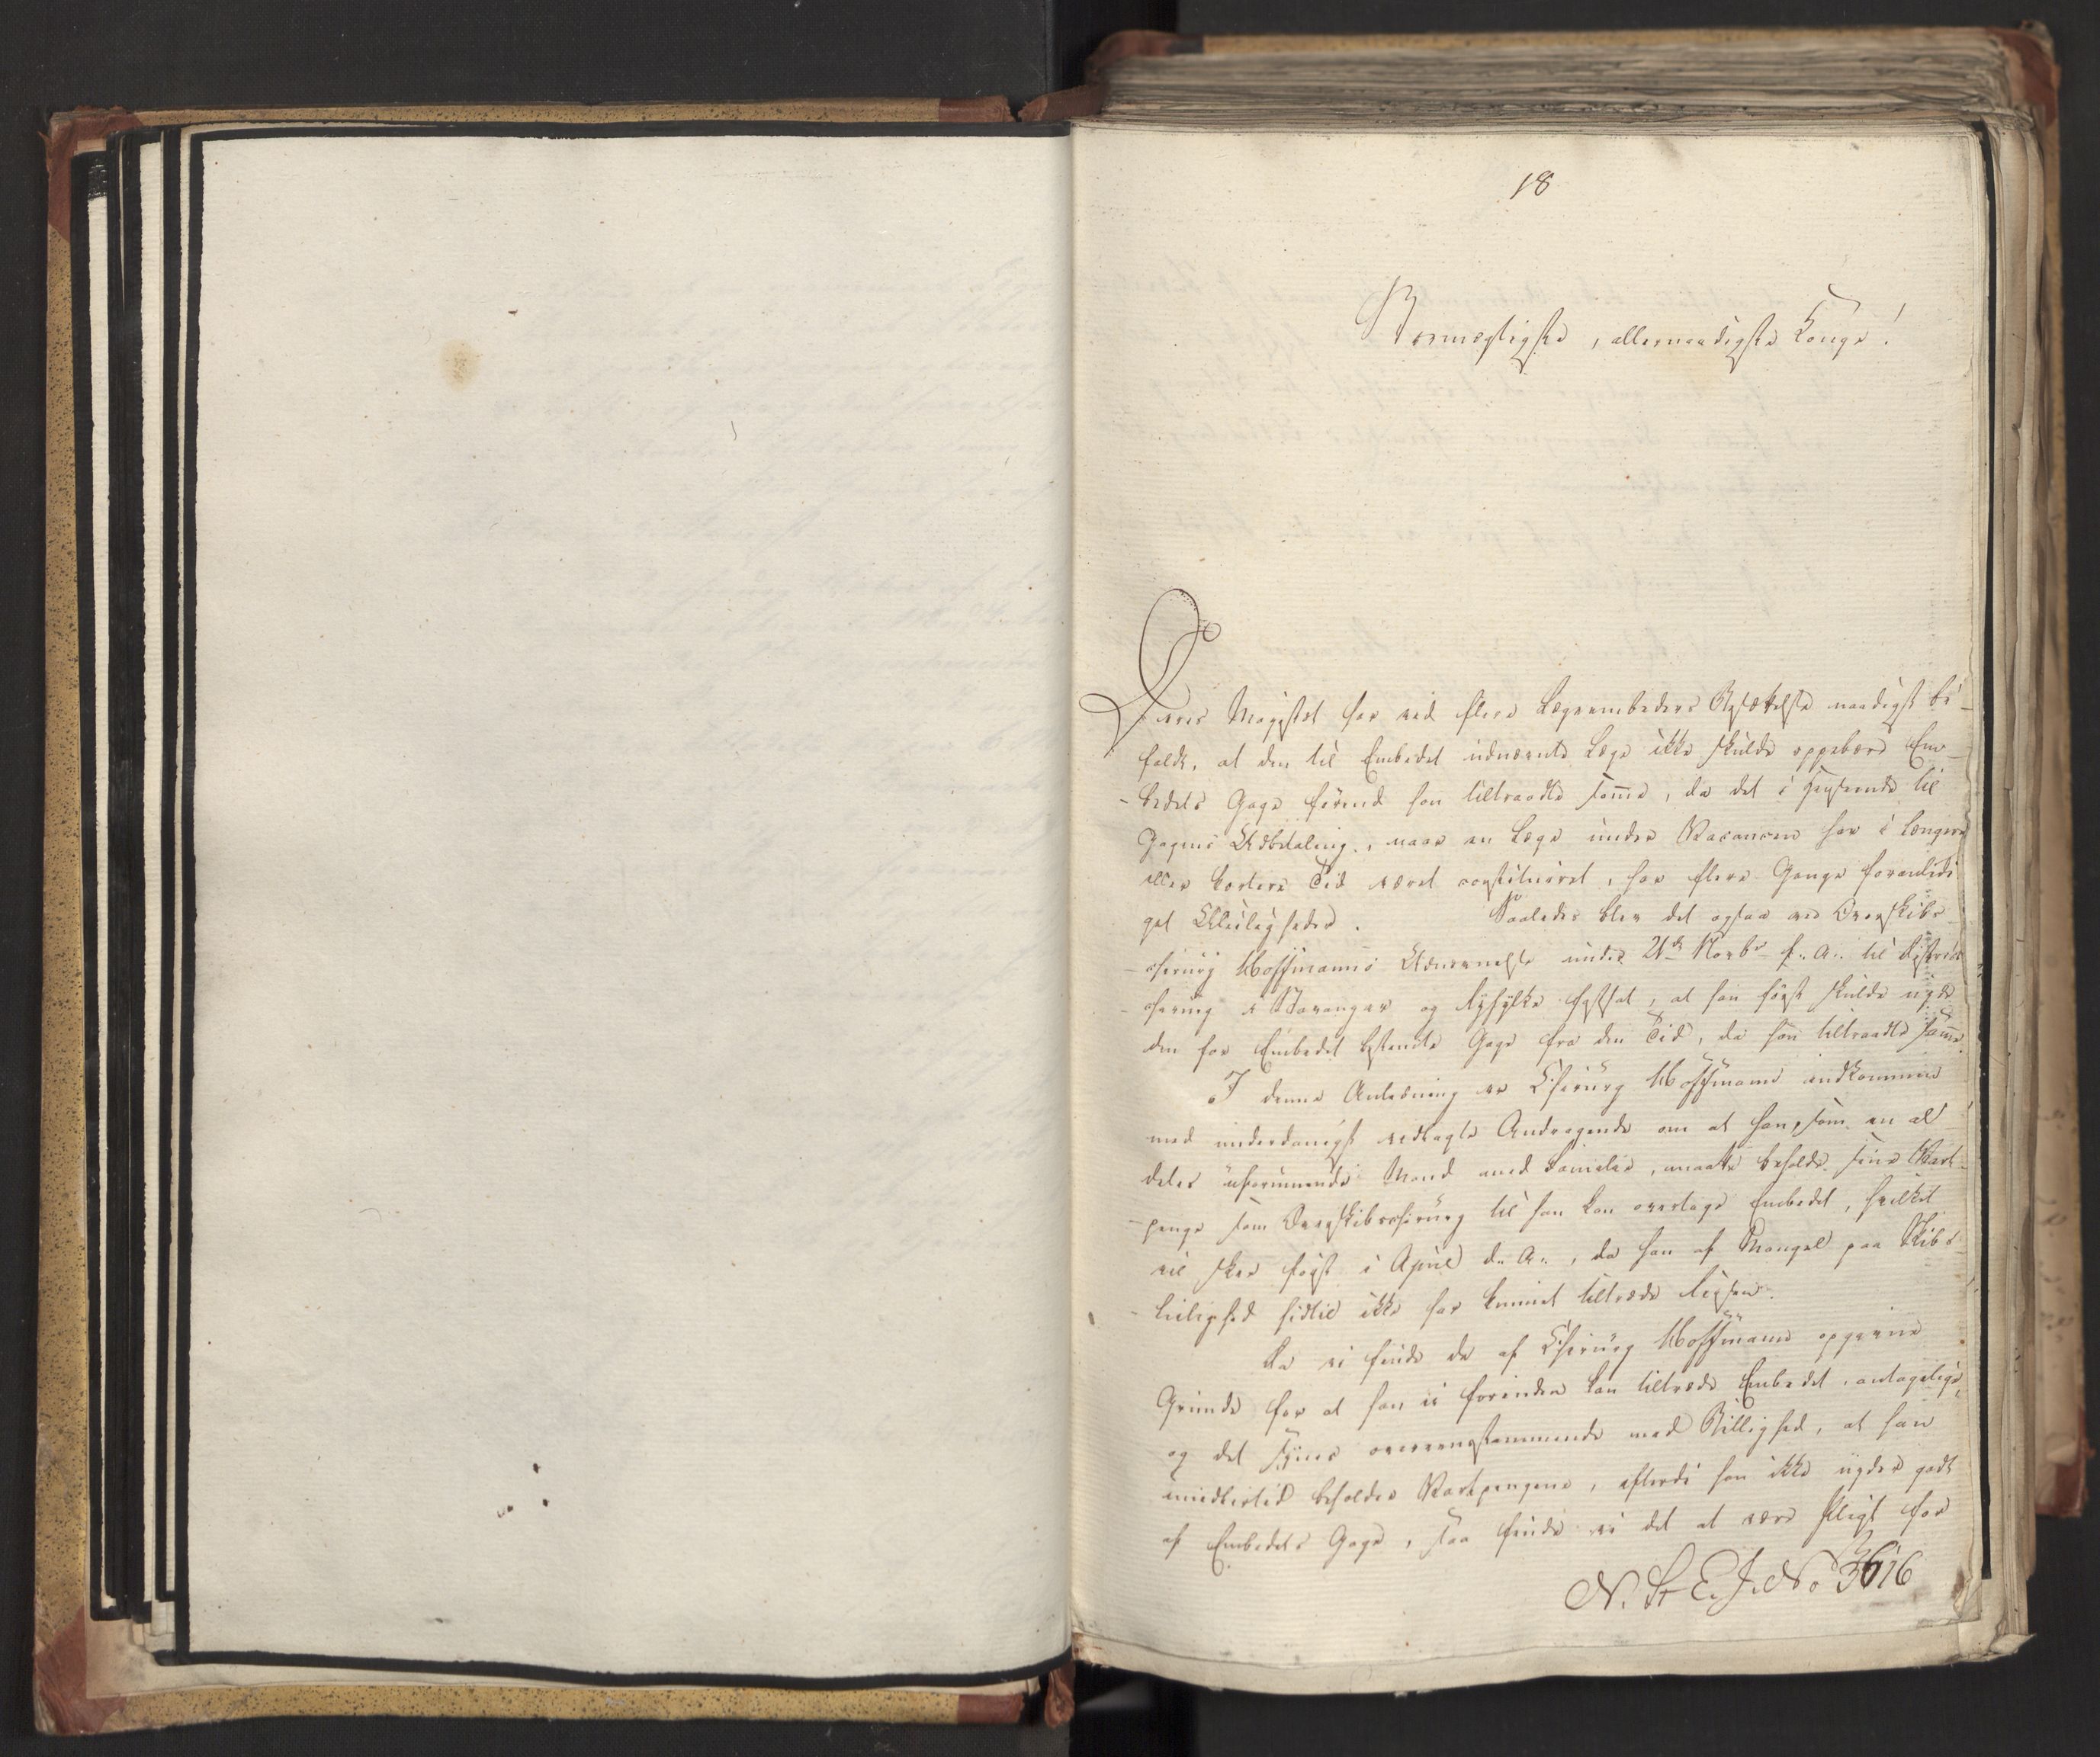 18
Stormægtigste, allernaadigste Konge!
Deres Majestæt har ved flere Lægeembeders Besættelse naadigst be-
falet, at den til Embedet udnævnte Læge ikke skulde oppebære Em-
-bedets Gage førend han tiltraadte samme, da det i Henseende til
Gagens Udbetaling, naar en Læge under Vacancen har i længere
eller kortere Tid været constitueret, har flere Gange foranledi
get Uleiligheder. Saaledes blev det ogsaa ved Overskibs-
-chirurg Hoffmanns Udnævnelse under 21de Novbr f. A. til District
-chirurg i Stavanger og Ryfylke fastsat, at han først skulde nyde
den for Embedet bestemte Gage fra den Tid, da han tiltraadte samme.
I denne Anledning er Chirurg Hoffmann indkommen
med underdanigst vedlagte Andragende om at han, som en al
deles uformuende Mand med Familie, maatte beholde sine Vart-
-penge som Overskibschirurg til han kan overtage Embedet, hvilket
vil skee først i April d. A., da han af Mangel paa Skibs-
-leilighed hidtil ikke har kunnet tiltræde Reisen.
Da vi finde de af Chirurg Hoffmann opgivne
Grunde for at han ei forinden kan tiltræde Embedet, antagelige,
og det synes overeensstemmende med Billighed, at han
imidlertid beholder Vartpengene, efterdi han ikke nyder godt
af Embedets Gage, saa finde vi det at være Pligt for
N. St. E. J. No 3616